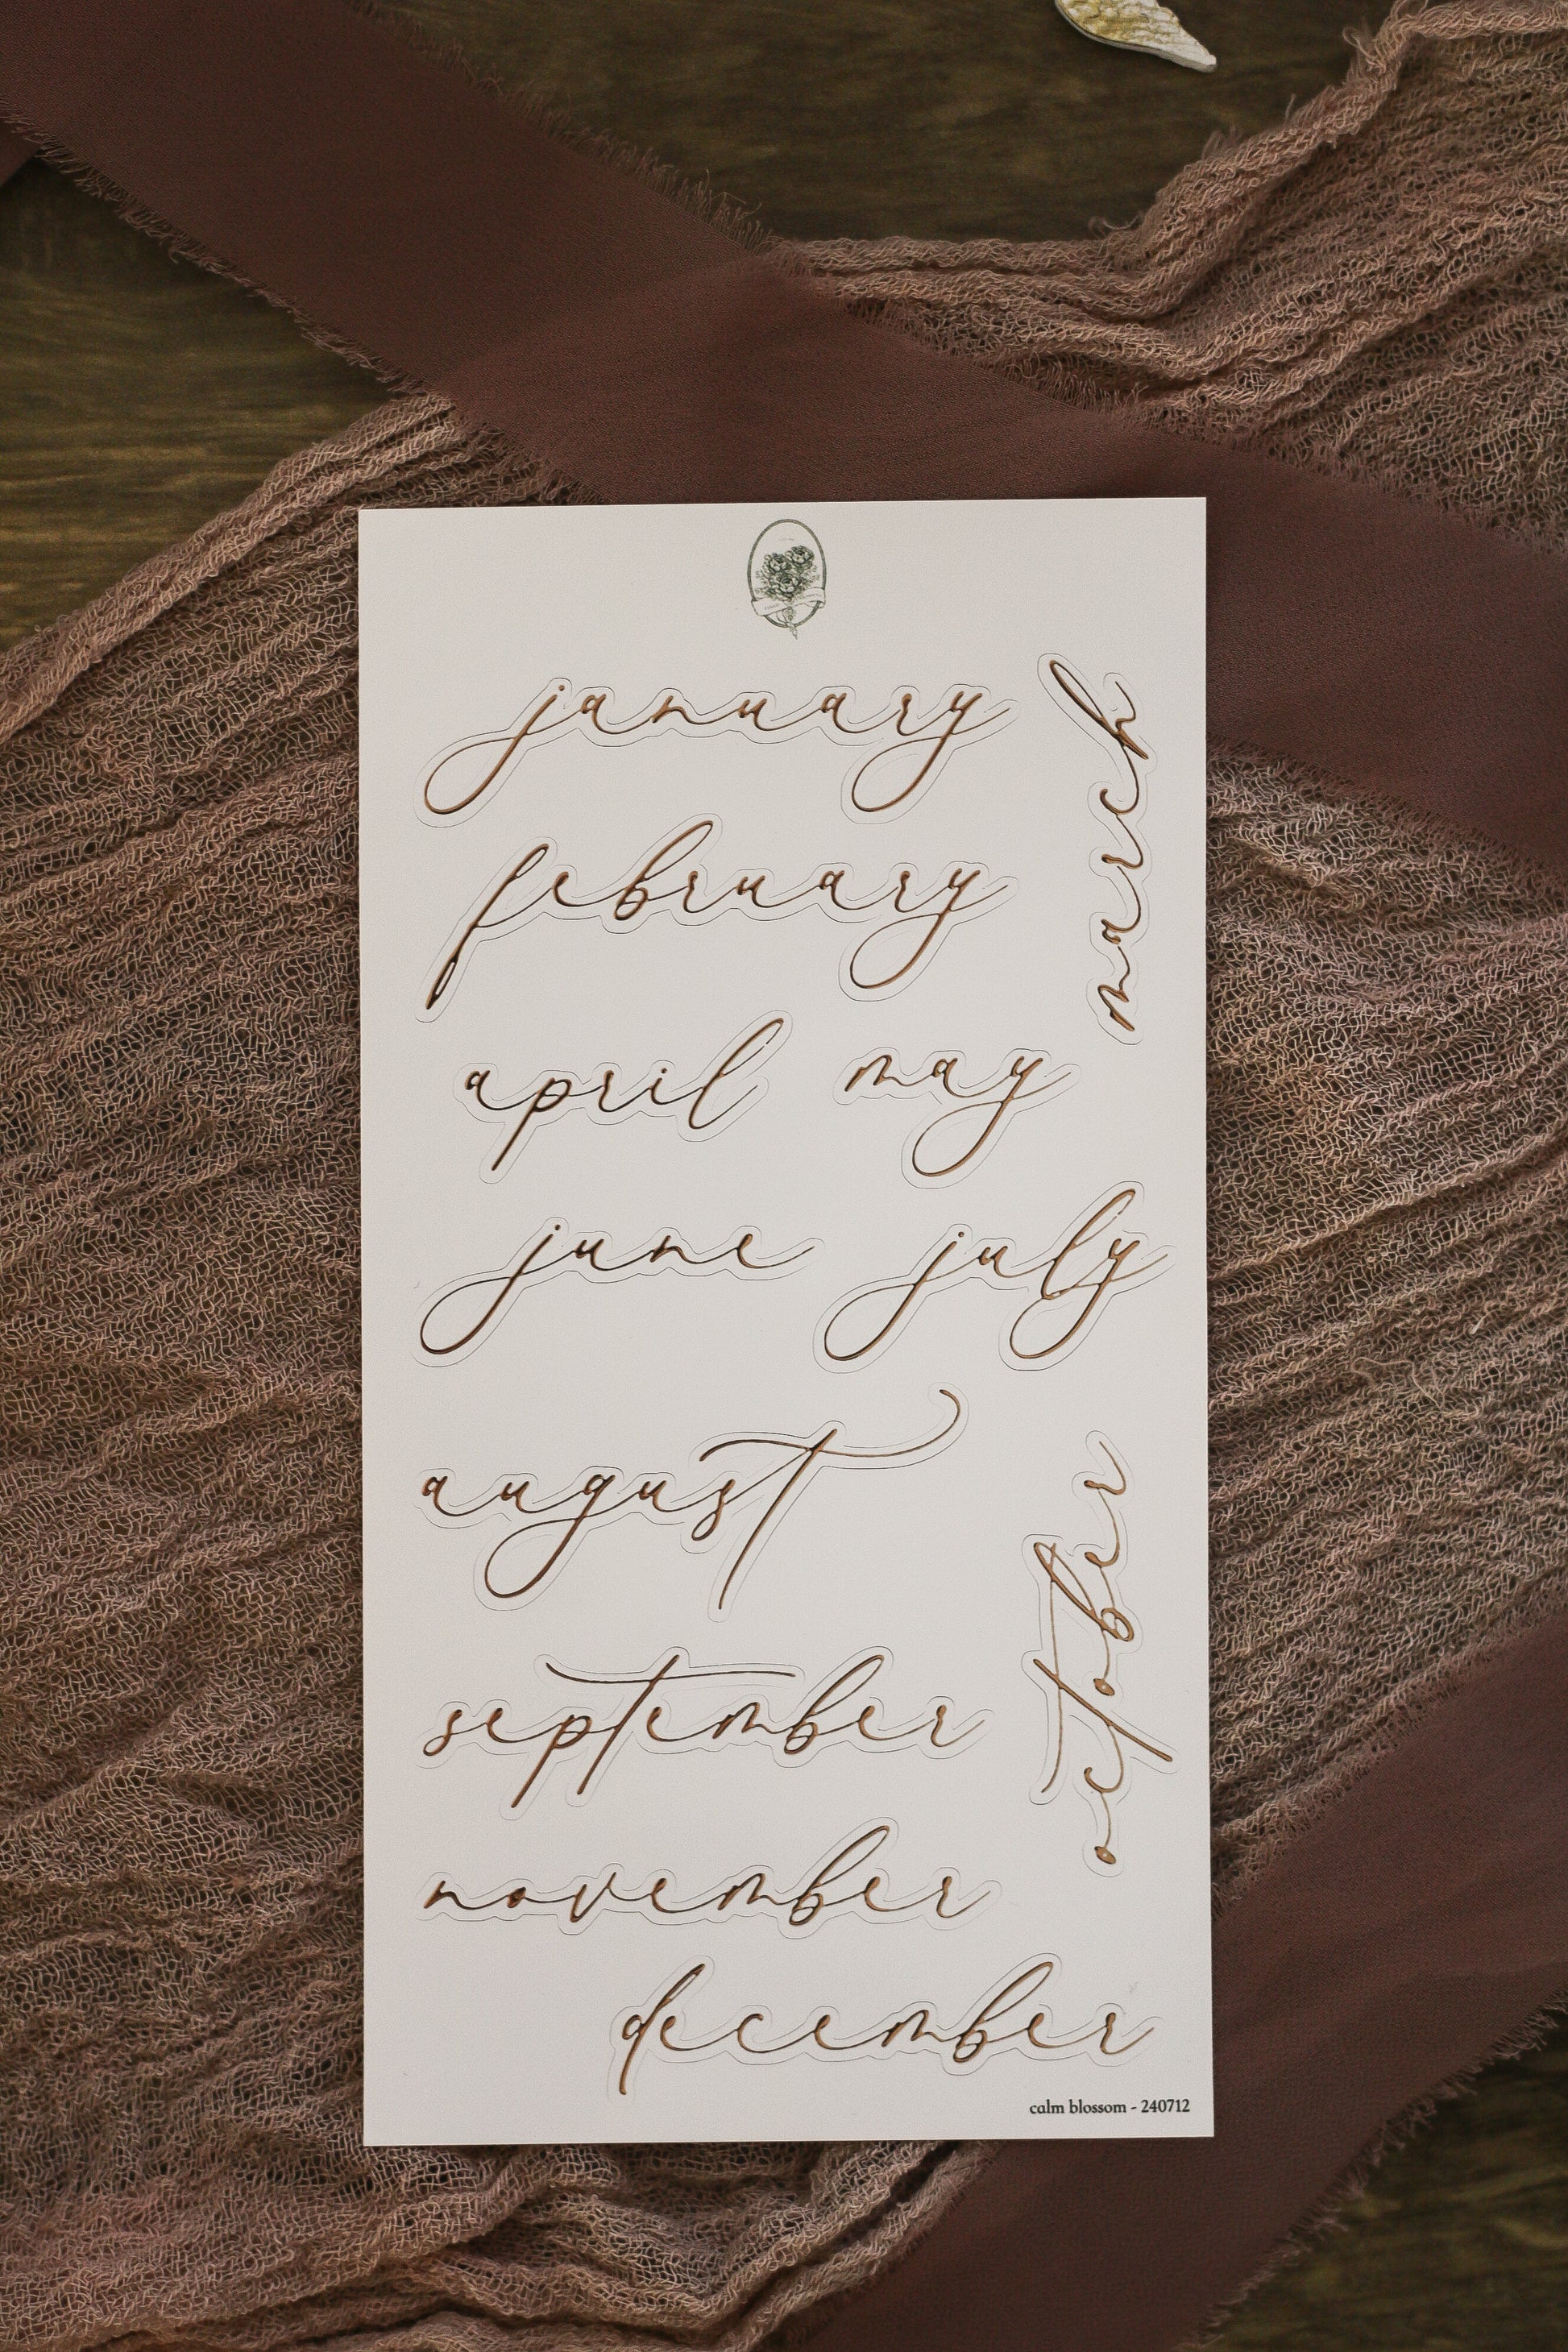 january
february
march
april may
june july
august
september
october
november
december
calm blossom - 240712